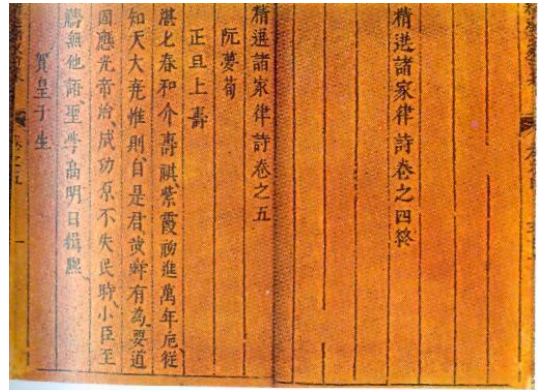 精選諸家律詩卷之四終
精選諸家律詩卷之五
阮夢荀
正旦上壽
湛〻春和介壽祺紫霞初進萬年卮從
知天大堯惟則自是君哉舜有為要道
固應光帝治成功原不失民時小臣至
禱無他語聖學高明日緝熙
賀皇子生
卷之五
一